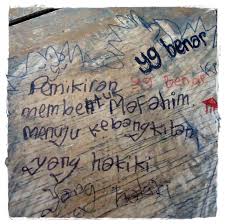 yg benar
Pemikiran yg benar
membent Mafahim
menuju kebangkitan
yang hakiki
yang hakiki